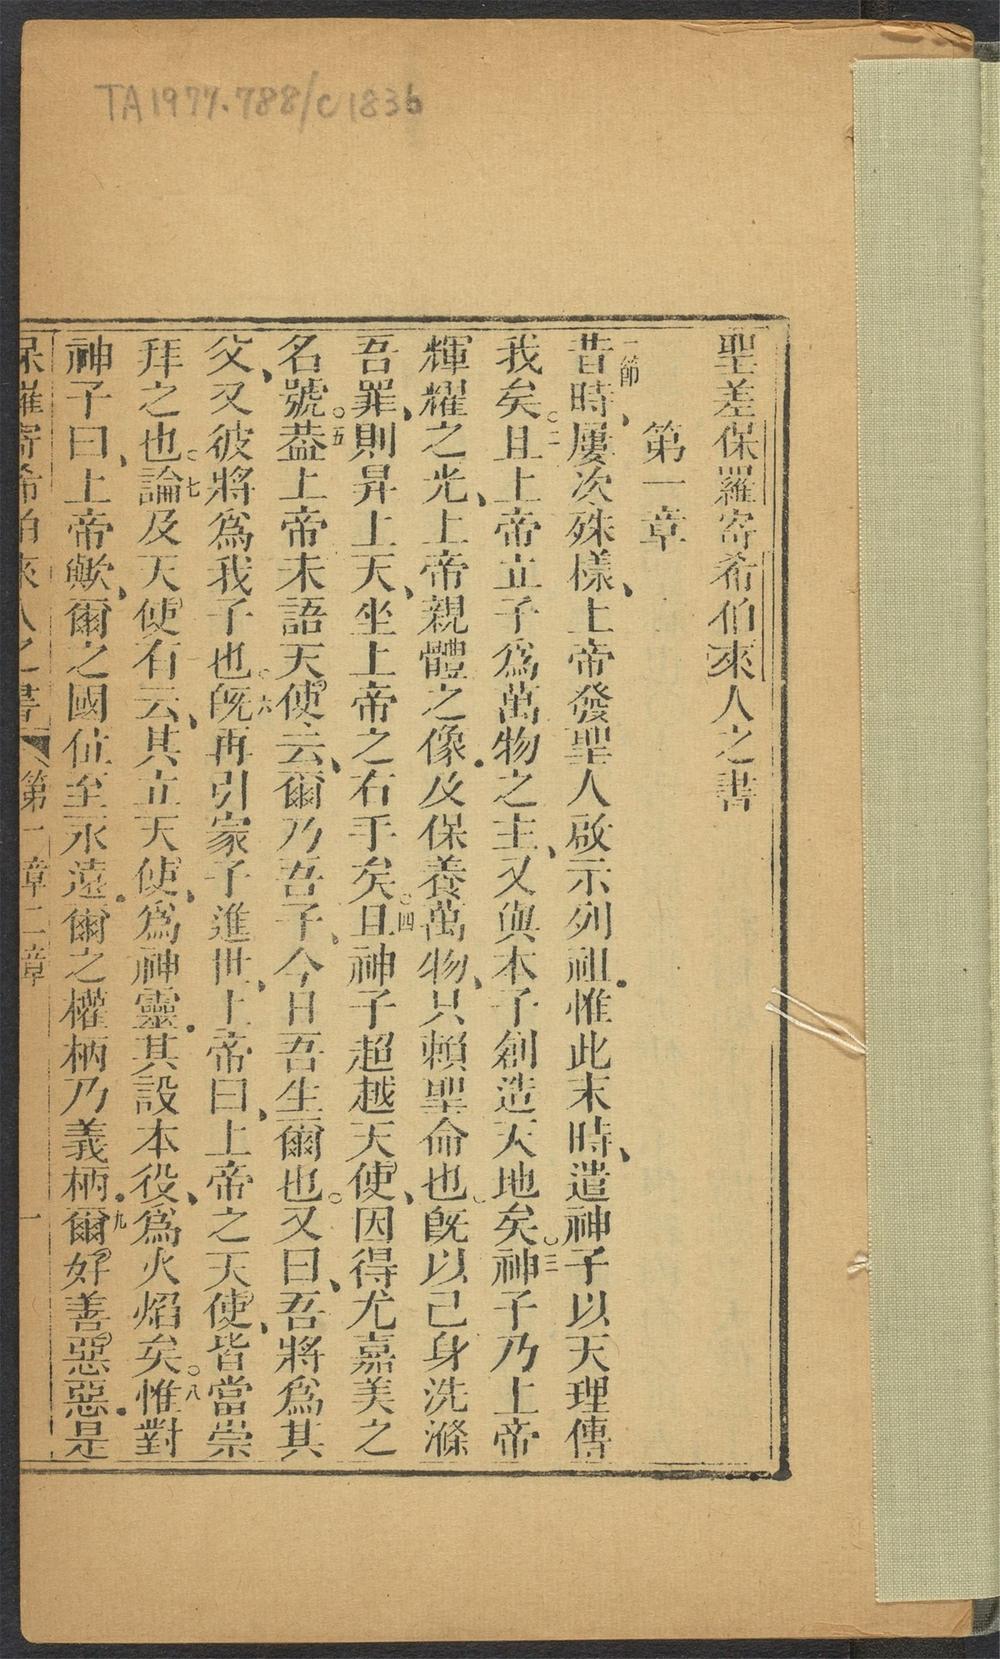 TA1977.788/C1836
聖差保羅寄希伯來人之書
第一章
一節昔時、屢次殊樣、上帝發聖人啟示列祖.惟此末時、遣神子以天理傳
我矣○二且上帝立子爲萬物之主、又與本子創造天地矣○三神子乃上帝
輝耀之光、上帝親體之像.及保養萬物、只賴聖命也.旣以己身洗滌
吾罪、則昇上天、坐上帝之右手矣○四且神子超越天使、因得尤嘉美之
名號○五葢上帝未語天使云、爾乃吾子、今日吾生爾也○又曰、吾將爲其
父、又彼將爲我子也○六旣再引家子進世、上帝曰、上帝之天使、皆當崇
拜之也○七論及天使有云、其立天使、爲神靈.其設本役、爲火焰矣○八惟對
神子曰、上帝歟、爾之國位至永遠.爾之權柄乃義柄.九爾好善惡惡.是
保羅寄希伯來人之書 第一章二章 一